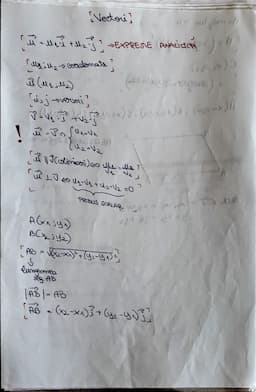 [Vectori]
[u⃗ = u₁·i⃗ + u₂·j⃗] → EXPRESIE ANALITICĂ
[u₁; u₂ → coordonate]
u⃗ (u₁, u₂)
[i⃗, j⃗ → versori]
v⃗ = v₁·i⃗ + v₂·j⃗
! u⃗ = v⃗ ⇔ { u₁ = v₁
u₂ = v₂
[u⃗ ∥ v⃗ (coliniari) ⇔ u₁/v₁ = u₂/v₂
[u⃗ ⊥ v⃗ ⇔ u₁·v₁ + u₂·v₂ = 0]
PRODUS SCALAR
A(x₁; y₁)
B(x₂; y₂)
[AB = √(x₂-x₁)² + (y₂-y₁)²]
↓
lungimea
sg AB
|AB⃗| = AB
[AB⃗ = (x₂-x₁)i⃗ + (y₂-y₁)j⃗]